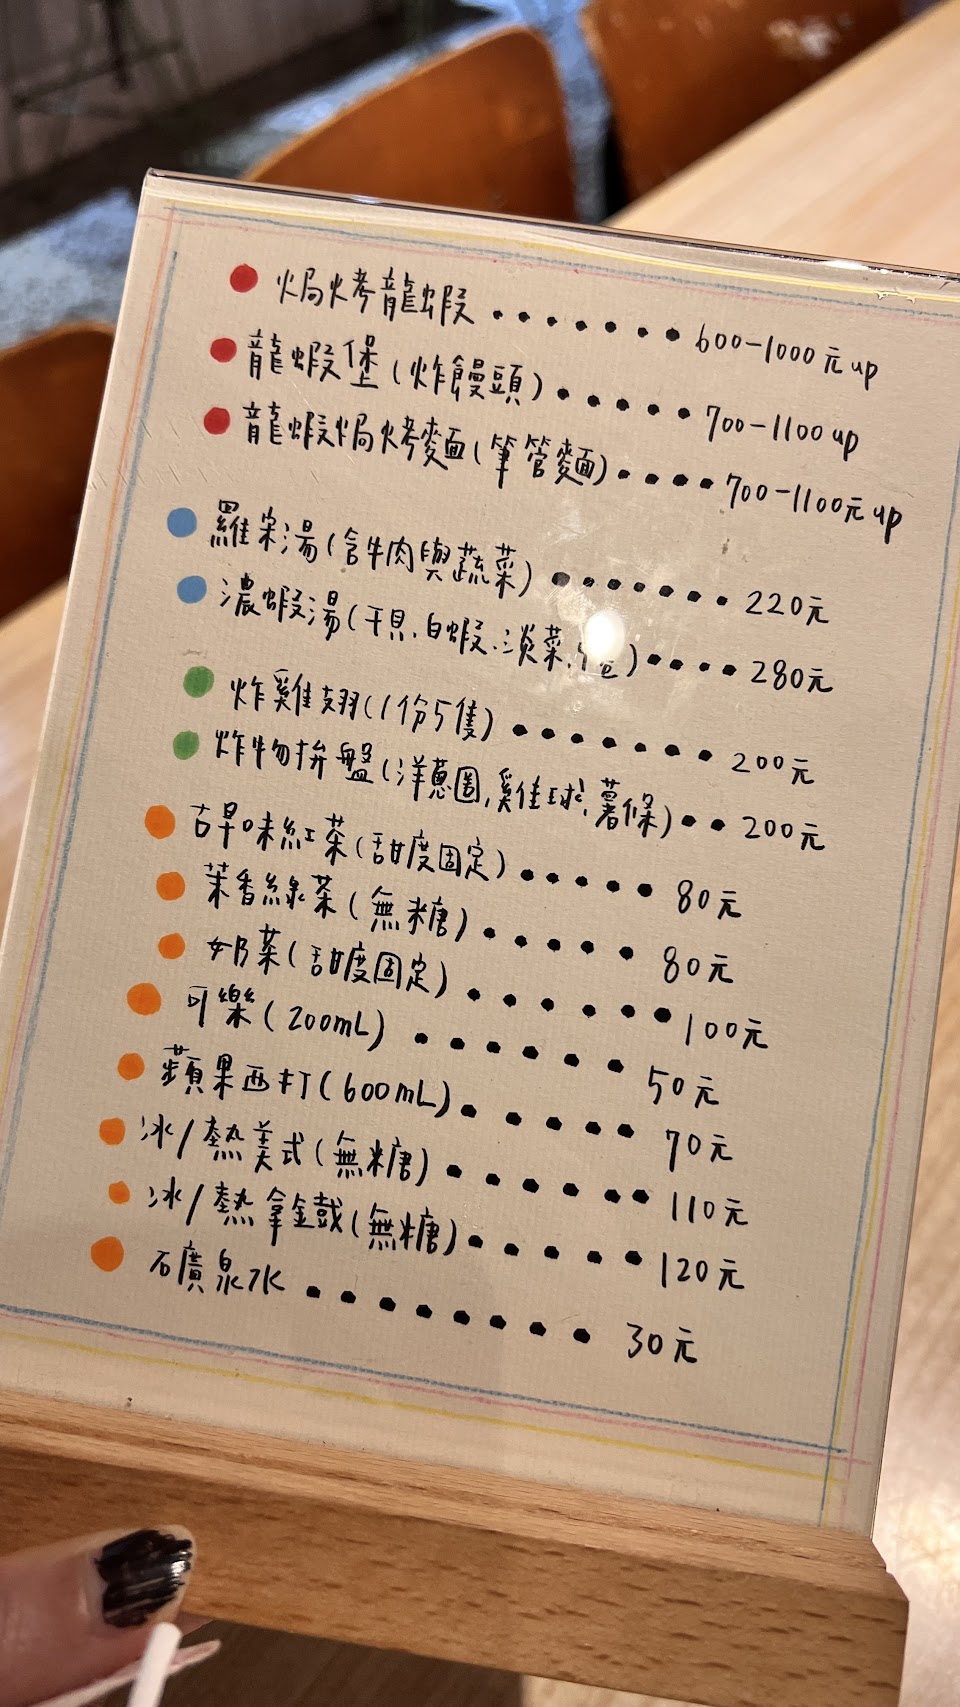 焗烤龍蝦 ....... 600-1000元up
龍蝦堡(炸饅頭) ..... 700-1100up
龍蝦焗烤麵(筆管麵) .... 700-1100元up
羅宋湯(含牛肉與蔬菜) ....... 220元
濃蝦湯(干貝.白蝦.淡菜. ) .... 280元
炸雞翅(1份5隻) ....... 200元
炸物拼盤(洋蔥圈,雞球,薯條) .. 200元
古早味紅茶(甜度固定) ..... 80元
茉香綠茶(無糖) ..... 80元
奶茶(甜度固定) ...... 100元
可樂(200mL) ...... 50元
蘋果西打(600mL) ..... 70元
冰/熱美式(無糖) ...... 110元
冰/熱拿鐵(無糖) ..... 120元
石廣泉水 ........ 30元